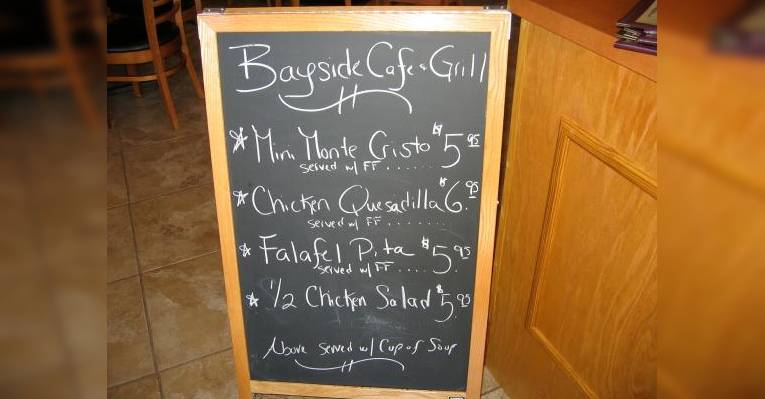 Bayside Cafe & Grill
Mini Monte Cristo $5.95
served w/ FF ......
Chicken Quesadilla $6.95
served w/ FF .......
Falafel Pita $5.95
served w/ FF ....
1/2 Chicken Salad $5.95
Above served w/ Cup of Soup